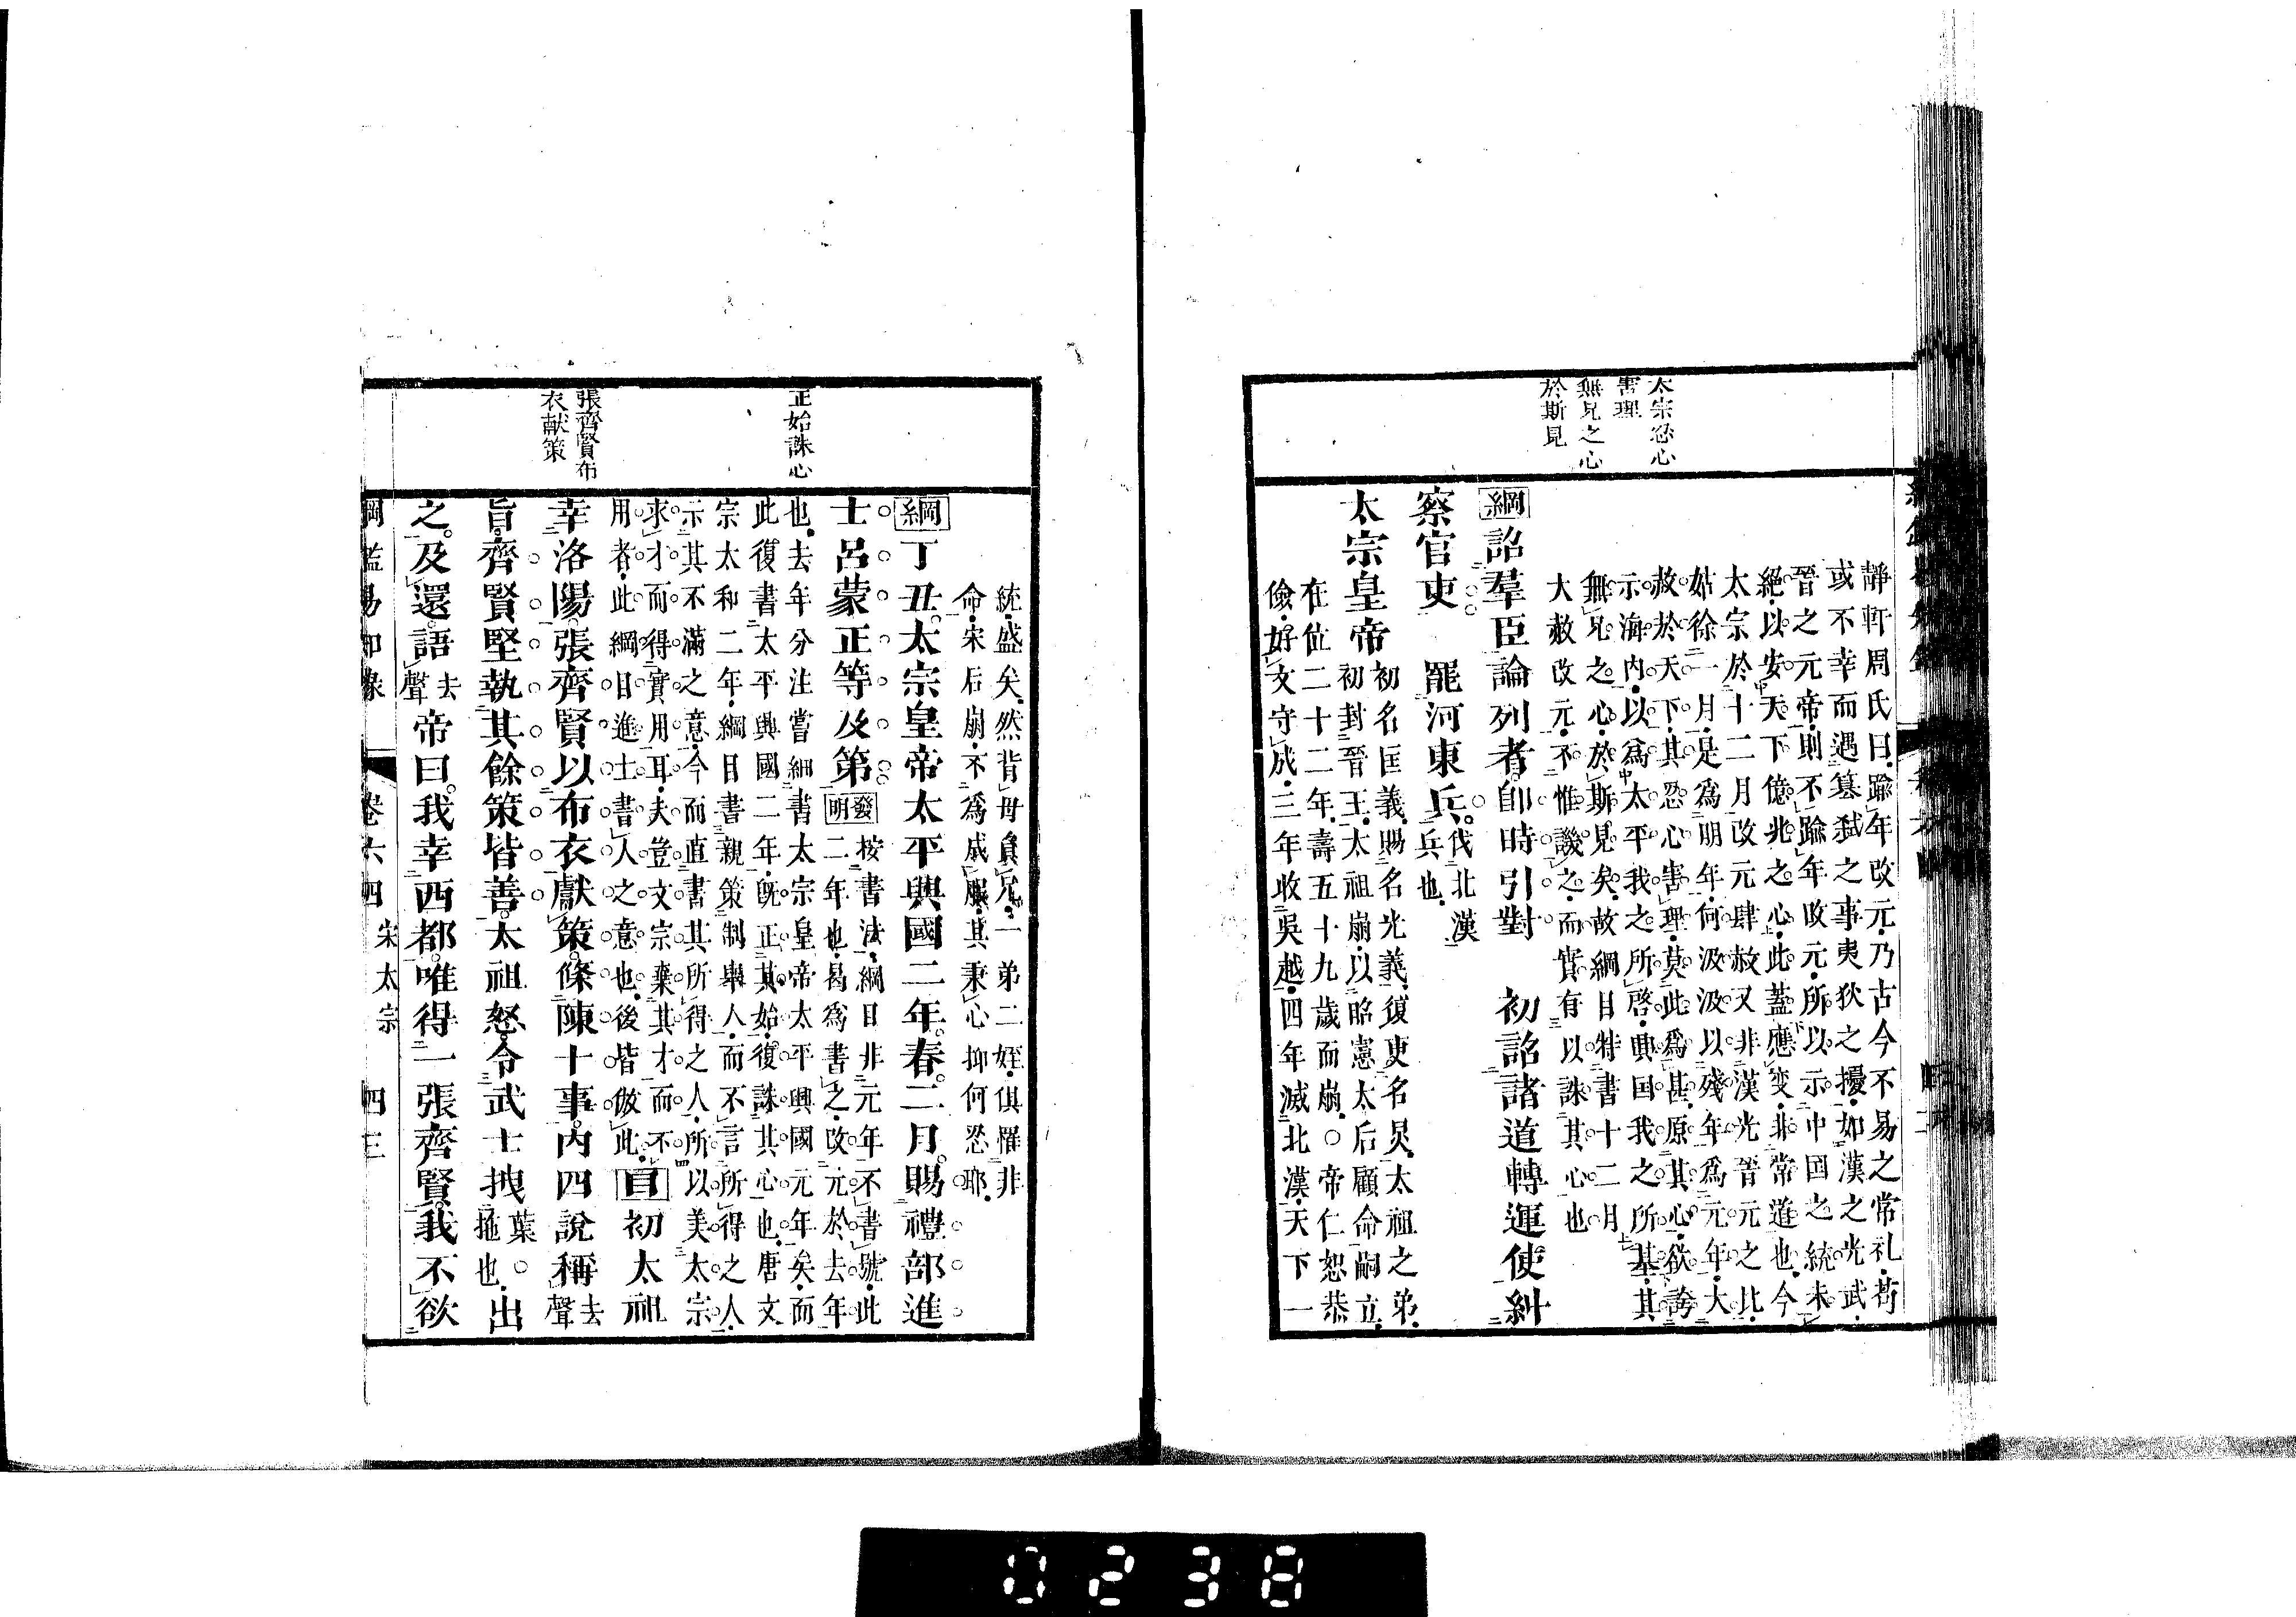 太宗忍心
害理
無兄之心
於斯見
靜軒周氏曰踰年改元乃古今不易之常礼苟
或不幸而遇簒弑之事夷狄之擾如漢之光武
晉之元帝則不踰年改元所以示中国之統未
絕以安天下億兆之心此蓋應変非常道也今
太宗於十二月改元肆赦又非漢光晉元之比
姑徐一月是為明年何汲汲以殘年為元年大
赦於天下其恐心害理莫此為甚原其心欲誇
示海內以為太平我之所啓興国我之所基其
無兄之心於斯見矣故綱目特書十二月
大赦改元不惟譏之而實有以誅其心也
綱詔羣臣論列者卽時引對 初詔諸道轉運使糾
察官吏 罷河東兵伐北漢
兵也
太宗皇帝初名匡義賜名光義復更名炅太祖之弟
初封晉王太祖崩以昭憲太后顧命嗣立
在位二十二年壽五十九歲而崩○帝仁恕恭
儉好文守成三年收吳越四年滅北漢天下一
統盛矣然背母負兄一弟二姪俱罹非
命宋后崩不為成服其秉心抑何恐耶
正始誅心
綱丁丑太宗皇帝太平興國二年春二月賜禮部進
士呂蒙正等及第發明按書法綱目非元年不書號此
二年也曷為書之改元於去年
也去年分注當細書太宗皇帝太平興國元年矣而
此復書太平興國二年旣正其始復誅其心也唐文
宗太和二年綱目書親策制舉人而不言所得之人
示其不滿之意今而直書其所得之人所以美太宗
求才而得實用耳夫豈文宗棄其才而不
用者此綱目進士書人之意也後皆倣此目初太祖
張齊賢布
衣献策
幸洛陽張齊賢以布衣獻策條陳十事內四說稱去
聲
旨齊賢堅執其餘策皆善太祖怒令武士拽葉○
拖也出
之及還語去
聲帝曰我幸西都唯得一張齊賢我不欲
綱鑑易知錄 卷六四 宋太宗 四三